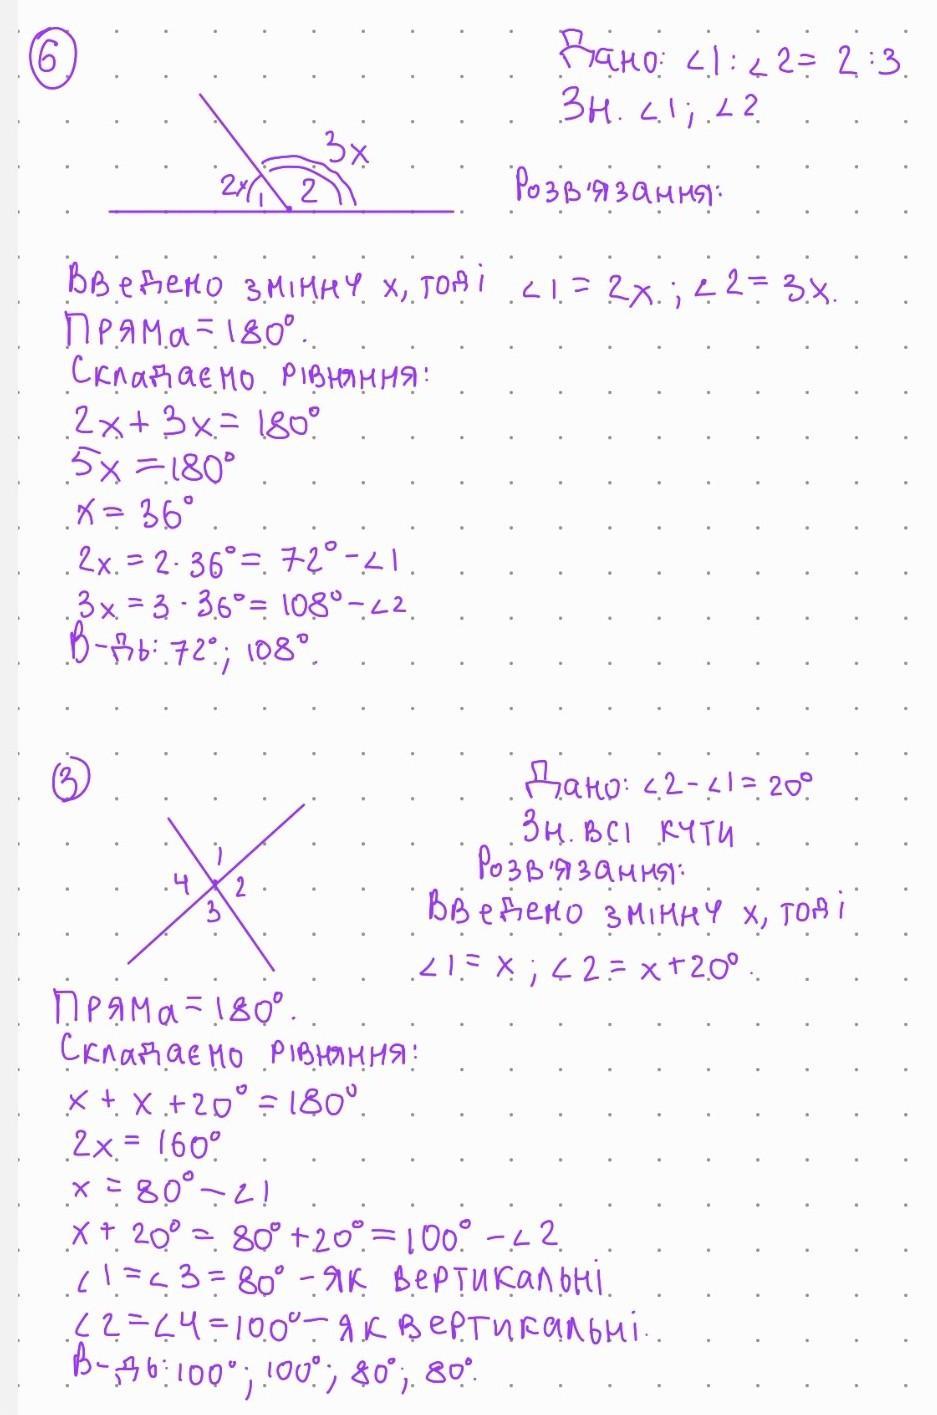 6
Дано: ∠1 : ∠2 = 2 : 3
Зн. ∠1; ∠2
3x
2x 1 2
Розв'язання:
Введено змінну x, тоді ∠1 = 2x ; ∠2 = 3x.
Пряма = 180°.
Складаємо рівняння:
2x + 3x = 180°
5x = 180°
x = 36°
2x = 2 · 36° = 72° - ∠1
3x = 3 · 36° = 108° - ∠2
В-дь: 72°; 108°.
3
Дано: ∠2 - ∠1 = 20°
Зн. всі кути
1
4 2
3
Розв'язання:
Введено змінну x, тоді
∠1 = x ; ∠2 = x + 20°.
Пряма = 180°.
Складаємо рівняння:
x + x + 20° = 180°
2x = 160°
x = 80° - ∠1
x + 20° = 80° + 20° = 100° - ∠2
∠1 = ∠3 = 80° - як вертикальні
∠2 = ∠4 = 100° - як вертикальні.
В-дь: 100°; 100°; 80°; 80°.